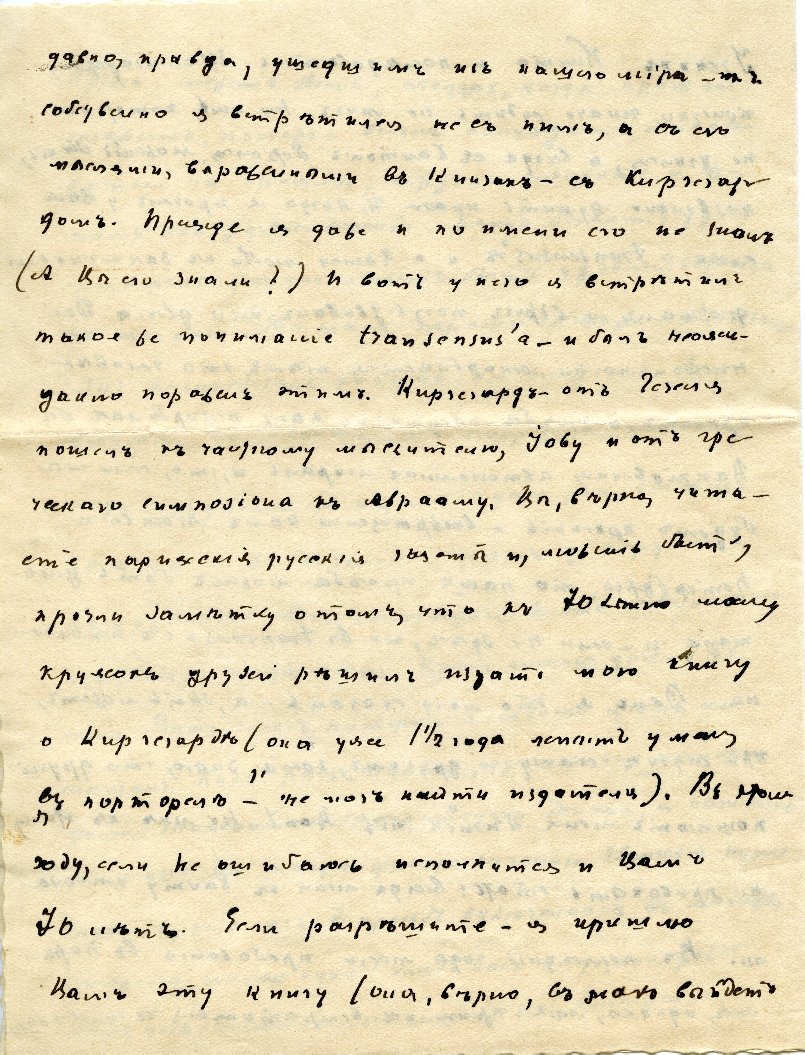 давно, правда, ушедшимъ изъ нашего міра – т.е.
собственно я встрѣтился не съ нимъ, а съ его
мыслями, выраженными въ книгахъ – съ Киргегар-
домъ. Прежде я даже и по имени его не зналъ
(А Вы его знали?) И вотъ у него я встрѣтилъ
такое же пониманіе transensus'а – и былъ неожи-
данно пораженъ этимъ. Киргегардъ – отъ Гегеля
пошелъ къ частному мыслителю, Іову и отъ гре-
ческаго симпозіона къ Аврааму. Вы, вѣрно, чита-
ете парижскія русскія газеты и, можетъ быть,
прочли замѣтку о томъ, что къ 70 лѣтію моему
кружокъ друзей рѣшилъ издать мою книгу
о Киргегардѣ (она уже 1½ года лежитъ у меня
въ портфелѣ – я не могъ найти издателя). Въ этомъ
году, если не ошибаюсь исполнится и Вамъ
70 лѣтъ. Если разрѣшите – я пришлю
Вамъ эту книгу (она, вѣрно, въ маѣ выйдетъ